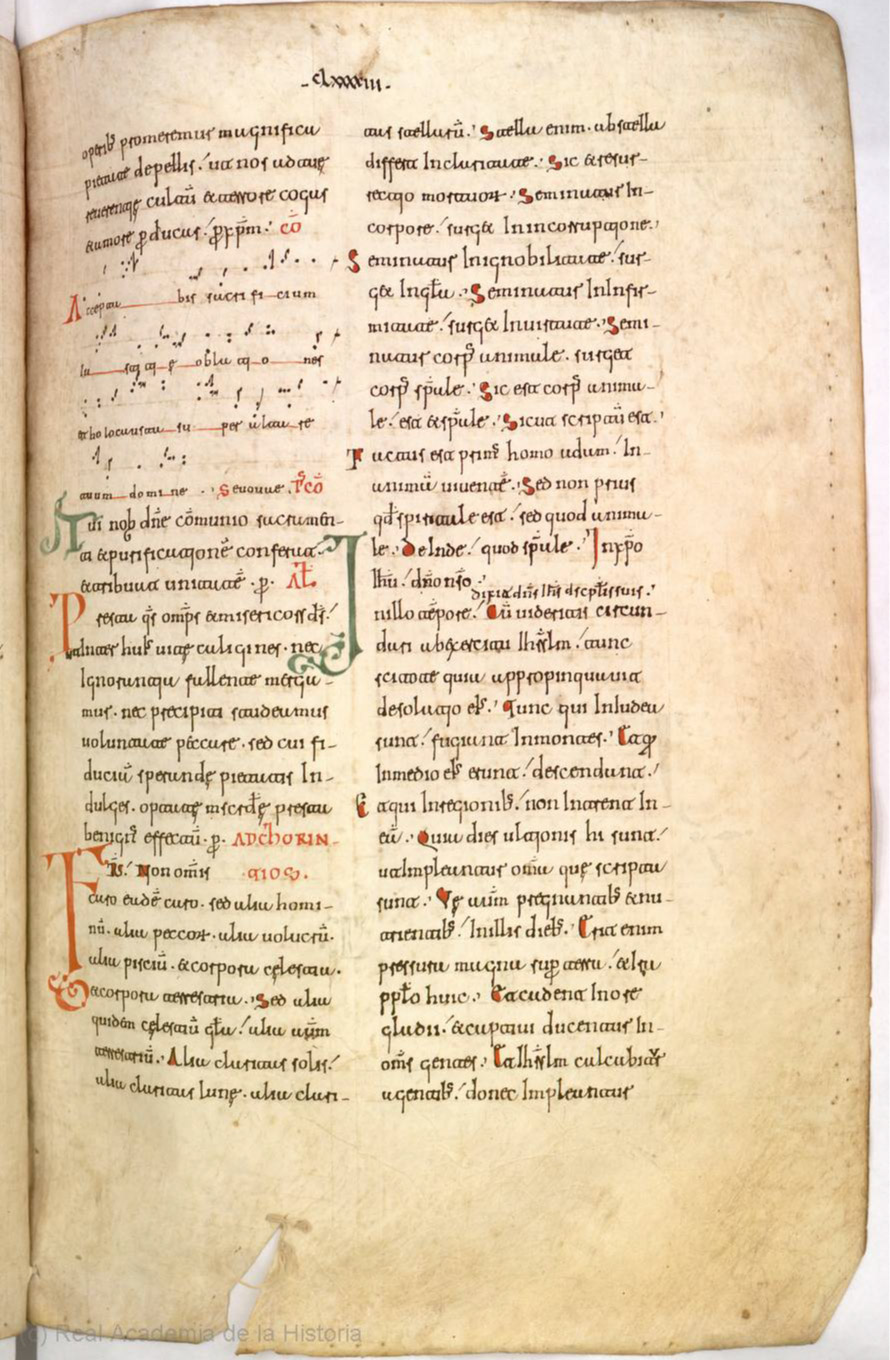 -clxxxiii-
operib; promeremur magnifica
pietate depellis. ut nos ad tuę
reuerentię cultū & terrore cogas
& amore p̄ducas. p̄ xp̄m. cō
Acceptabis sacrificium
iustitię oblationes
et holocausta super altare
tuum domine. Seuouae. P̄t̄ cō
Tui nob̄ dn̄e cōmunio sacramen-
ti & purificationē conferat.
& tribuat unitatē. p̄. Al̄
Presta q̄s om̄ps & misericors d̄s.
ad huius uitę caligines. nec
Ignorantia fallente mergu-
mur. nec precipiti studeamus
uoluntate peccare. sed cui fi-
duciā sperandę pietatis In-
dulges. optatę mīscdię presta
benignus effectū. p̄. AD CHORIN-
Fr̄s. Non omnis TIOS.
caro eadē caro. sed alia homi-
nū. alia pecor. alia uolucrū.
alia pisciū. & corpora cęlestia.
& corpora terrestria. Sed alia
quidem cęlestiū gl̄a. alia autem
terrestriū. Alia claritas solis.
alia claritas lunę. alia clari-
tas stellarū. Stella enim ab stella
differt In claritate. Sic & resur-
rectio mortuor. Seminatur In
corpore. surget In incorruptione.
Seminatur In ignobilitate. sur-
get In gl̄a. Seminatur In Infir-
mitate. surget In uirtute. Semi-
natur corp̄ animale. surget
corp̄ sp̄ale. Sic est corp̄ anima-
le. est & sp̄ale. Sicut scriptū est.
Factus est primus homo adam. In
animā uiuentē. Sed non prius
qd̄ spiritale est. sed quod anima-
le. deInde. quod sp̄ale. In xp̄o
Ih̄u. dn̄o nr̄o.
dixit dn̄s ih̄s discipl̄is suis.
In illo tēpore. Cū uideritis circun-
dari ab exercitu Ih̄rlm. tunc
scitote quia appropinquauit
desolatio eius. Tunc qui In Iudea
sunt. fugiunt In montes. Et q̄
In medio eius erunt. descendunt.
Et qui In regionib;. non Intrent In
eā. Quia dies ultionis hi sunt.
ut Impleantur omnia quę scripta
sunt. Vę autem pregnantib; & nu-
trientib;. In illis dieb;. Erit enim
pressura magna sup̄ terra. & Ira
pp̄lo huic. Et cadent In ore
gladii. & captiui ducentur In
om̄s gentes. Et Ih̄rlm calcabitur
a gentib;. donec Impleantur
(c) Real Academia de la Historia